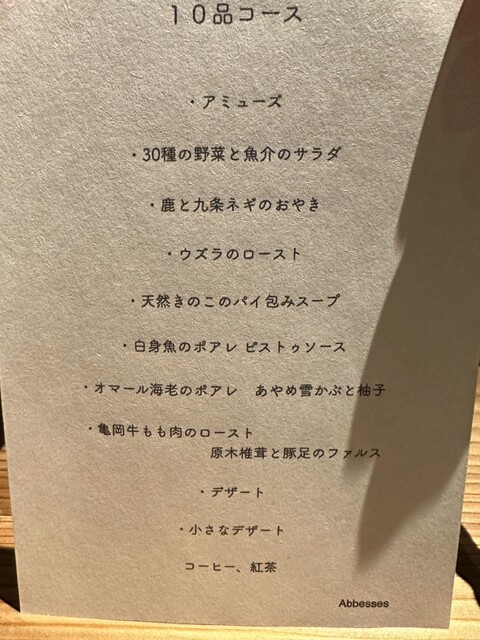 10品コース
・アミューズ
・30種の野菜と魚介のサラダ
・鹿と九条ネギのおやき
・ウズラのロースト
・天然きのこのパイ包みスープ
・白身魚のポアレ ピストゥソース
・オマール海老のポアレ　あやめ雪かぶと柚子
・亀岡牛もも肉のロースト
原木椎茸と豚足のファルス
・デザート
・小さなデザート
コーヒー、紅茶
Abbesses